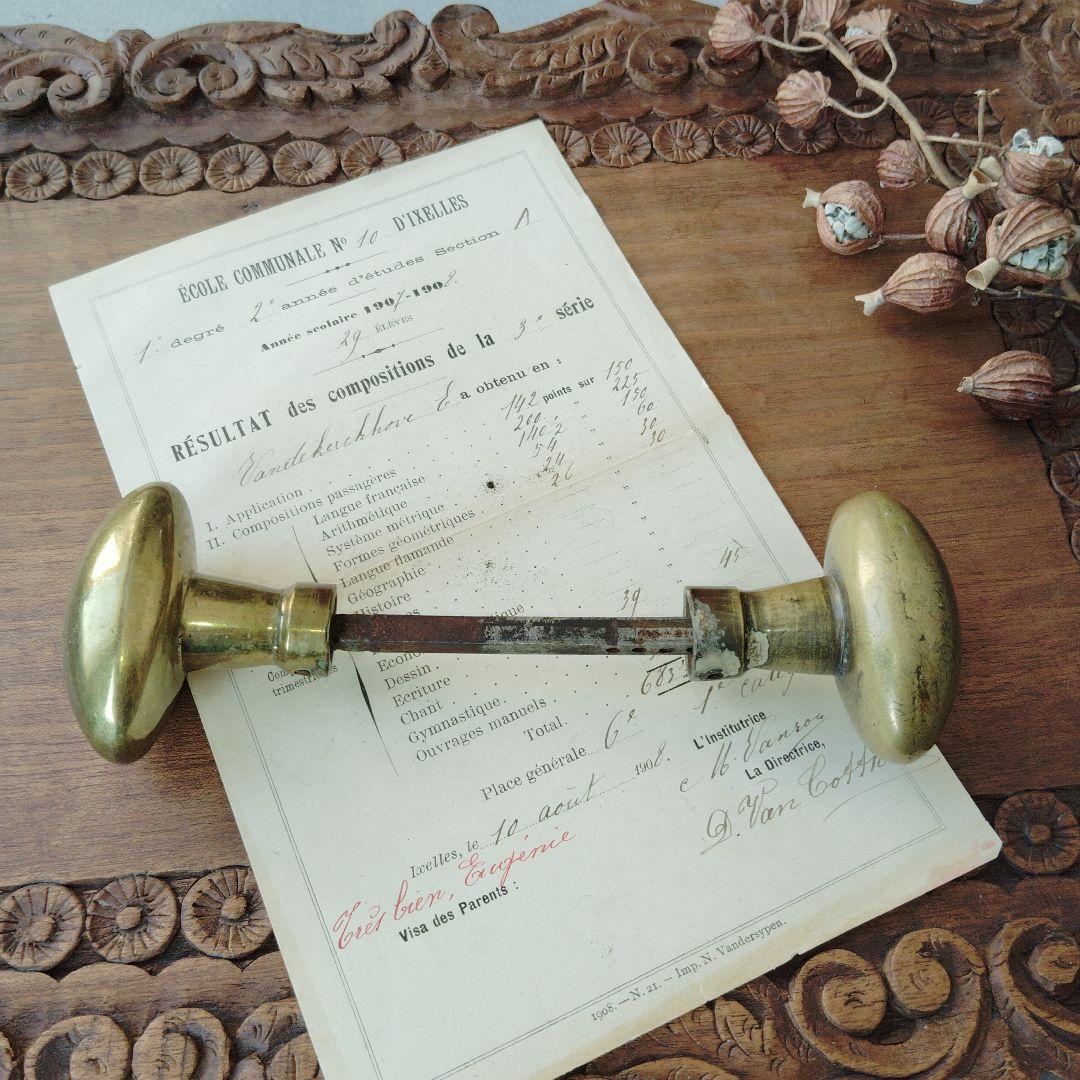 ÉCOLE COMMUNALE No 10 D'IXELLES
1r degré 2e année d'études Section A
Année scolaire 1907-1908.
29 ÉLÈVES
RÉSULTAT des compositions de la 3e série
Vandekerckhove E a obtenu en :
I. Application 142 points sur 150
II. Compositions passagères 200 " 225
Langue française 140.2 " 150
Arithmétique 54 " 60
Système métrique 24 " 30
Formes géométriques 26 " 30
Langue flamande "
Géographie "
Histoire
39 45
Econo
Dessin.
trimestri
Ecriture
Chant
Gymnastique.
Ouvrages manuels
Total. 683
Place générale 6e
L'Institutrice
La Directrice,
D. Van Cott
Ixelles, le 10 août 1908
Très bien, Eugénie
Visa des Parents :
1908. — N. 21. — Imp. N. Vandersypen.